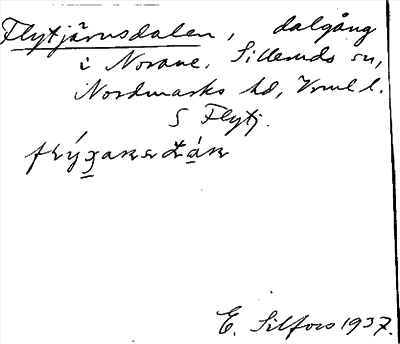 Flytjärnsdalen, dalgång
i Norane, Silleruds sn,
Nordmarks hd, Vrml l.
S Flytj.
E. Silfors 1937.